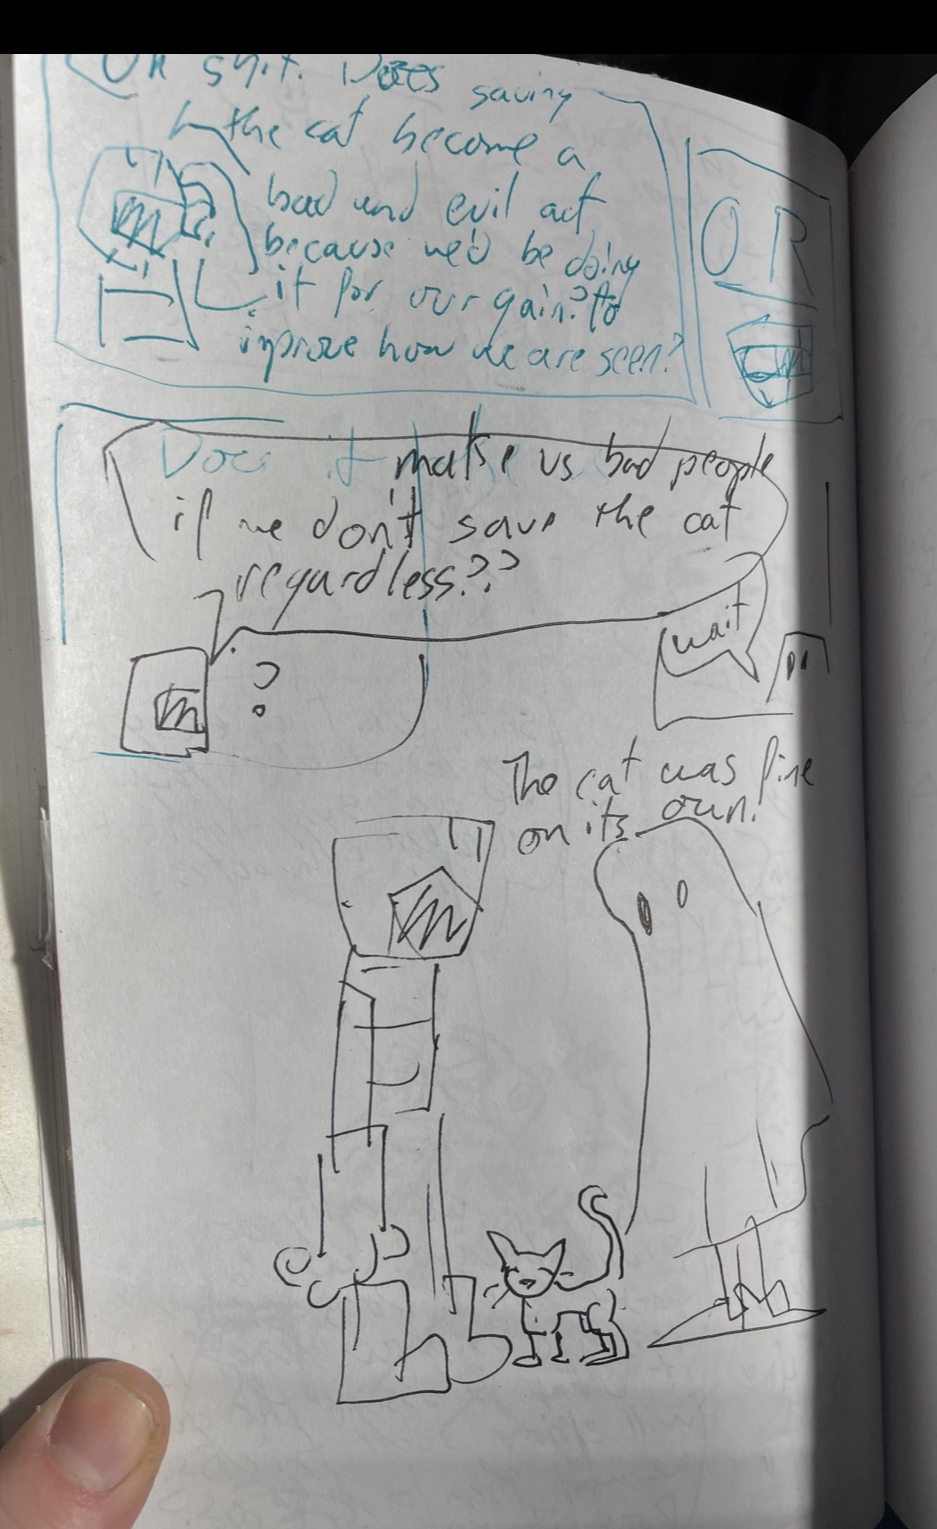 Oh shit. Does saving
the cat become a
bad and evil act
because we'd be doing
it for our gain? to
improve how we are seen?
OR
Does it make us bad people
if we don't save the cat
regardless??
wait
?
The cat was fine
on its own.